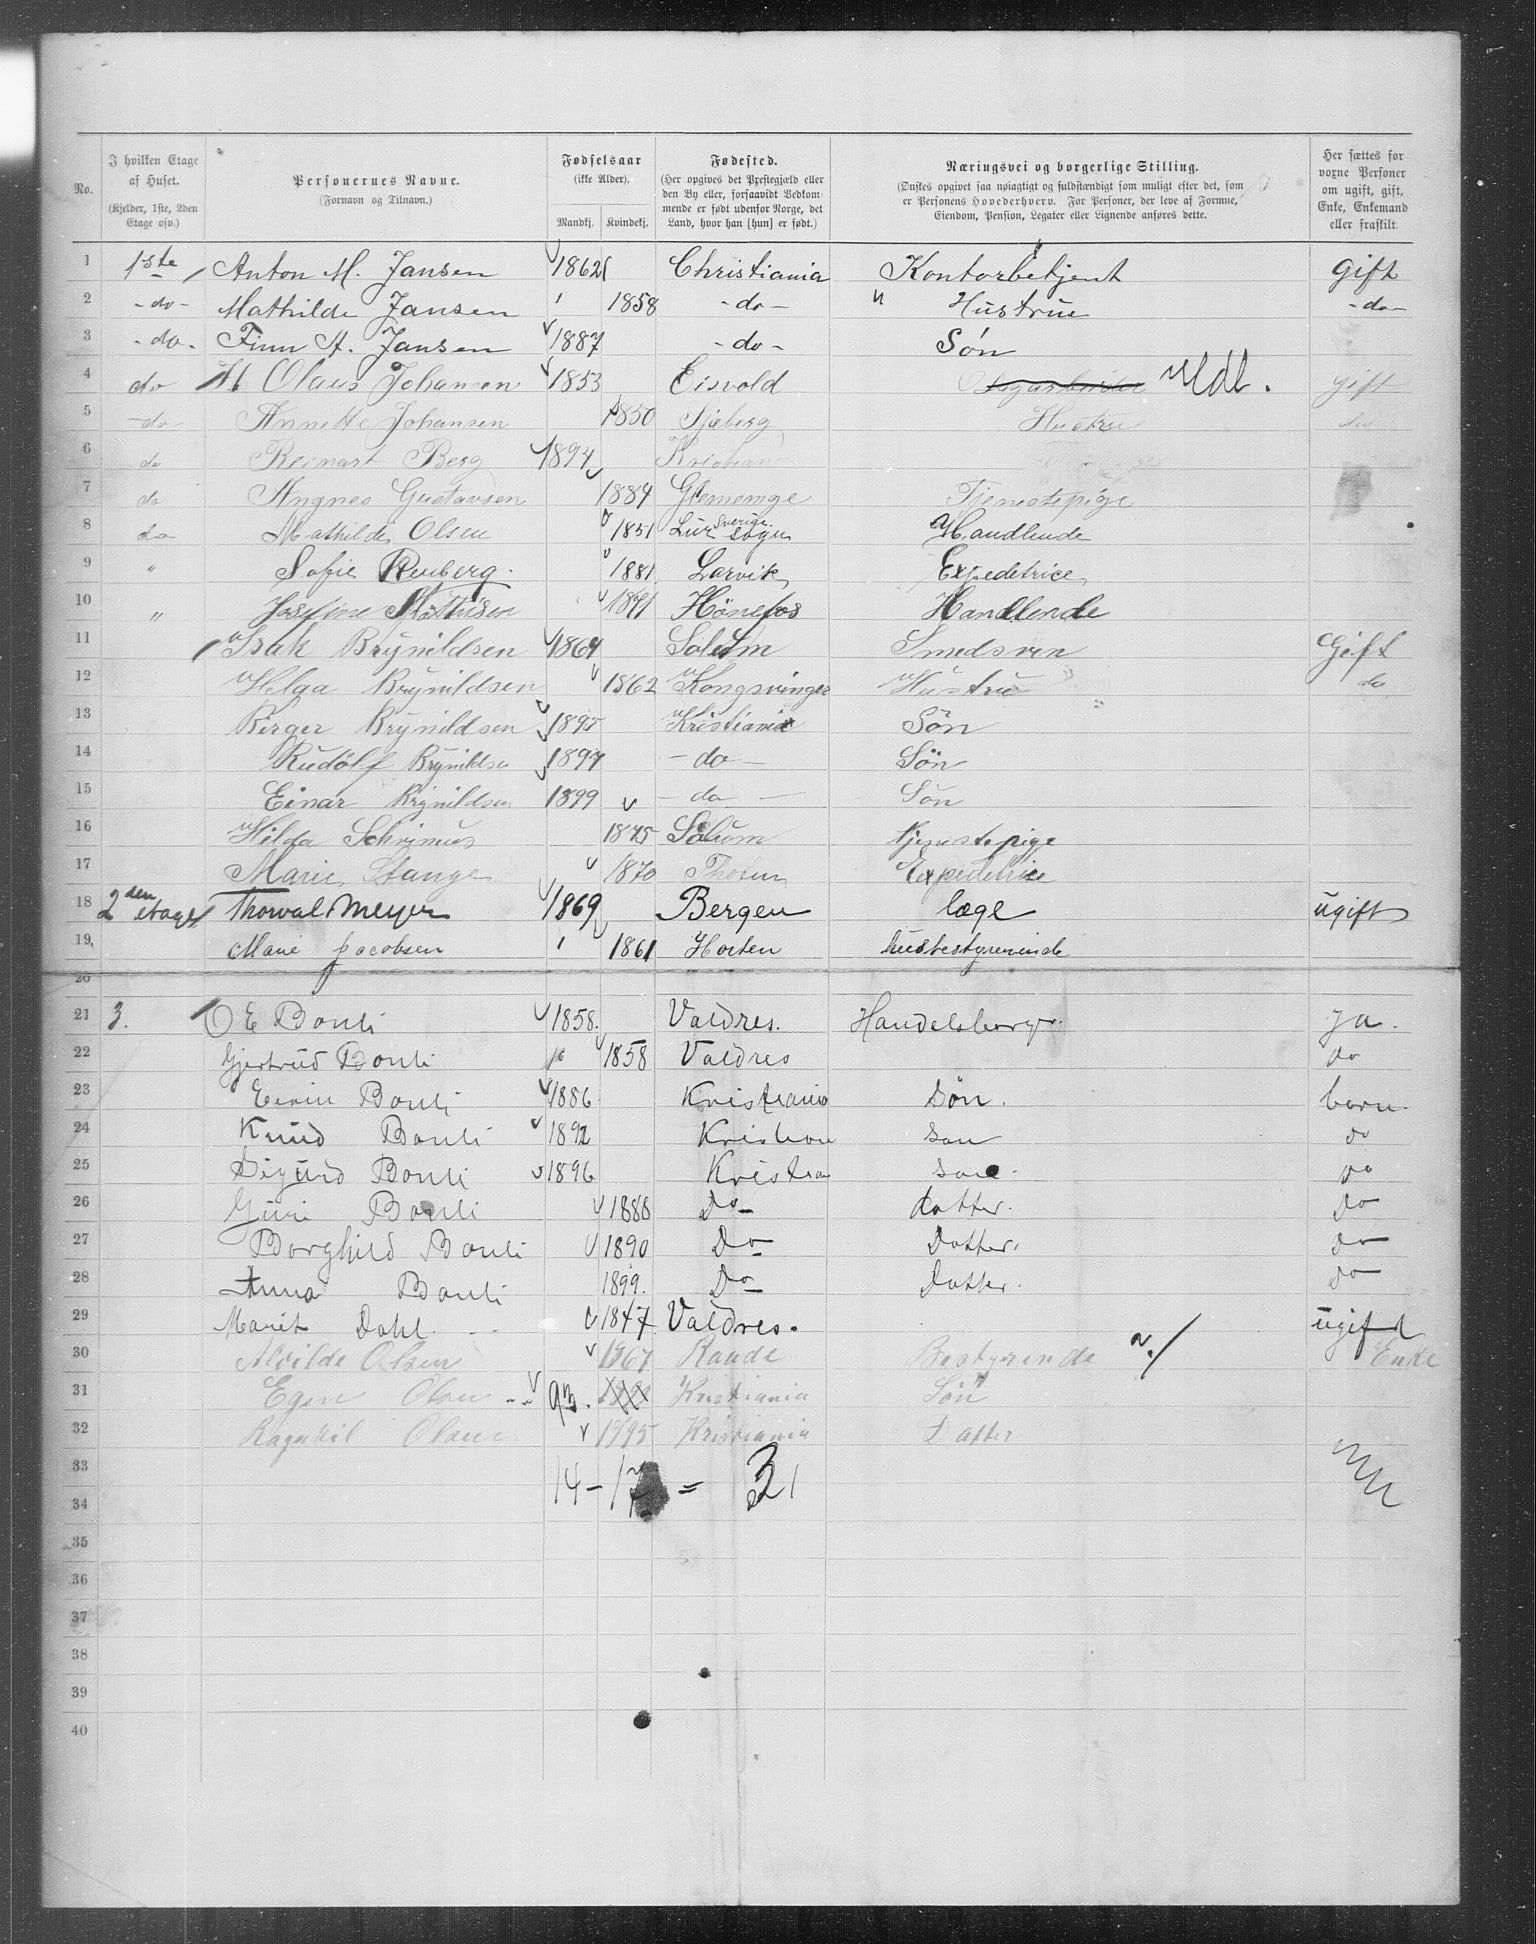 No. | I hvilken Etage af Huset. (Kjelder, 1ste, 2den Etage osv.) | Personernes Navne. (Fornavn og Tilnavn.) | Fødselsaar (ikke Alder). Mandkj. Kvindekj. | Fødested. (Her opgives det Prestegjæld eller den By eller, forsaavidt Vedkommende er født udenfor Norge, det Land, hvor han [hun] er født.) | Næringsvei og borgerlige Stilling. (Ønskes opgivet saa nøiagtigt og fuldstændigt som muligt efter det, som er Personens Hovederhverv. For Personer, der leve af Formue, Eiendom, Pension, Legater eller Lignende anføres dette.) | Her sættes for voxne Personer om ugift, gift, Enke, Enkemand eller fraskilt
1 1ste Anton M. Jansen 1862 Christiania Kontorbetjent gift
2 -do- Mathilde Jansen 1858 -do- Hustrue -do-
3 -do- Finn A. Jansen 1887 -do- Søn
4 do Olaus Johansen 1853 Eisvold gift
5 -do- Annette Johansen 1850 Hustru do
6 do Reinart Berg 1894
7 do Angnes Gustavsen 1884 Glemmige Tjenestepige
8 do Mathilde Olsen 1851 Lur Sverige. sogn Handlende
9 " Sofie Renberg. 1881 Larvik Expedetrice
10 " Josefine Mathisen Hönefos Handlende
11 Isak Brynildsen 1864 Solum Smedsven Gift
12 Helga Brynildsen 1862 Kongsvinger Hustru do
13 Birger Brynildsen 1895 Kristiania Sön
14 Rudolf Brynildsen 1897 -do- Sön
15 Einar Brynildsen 1899 -do- Sön
16 Hilda Schrimus 1875 Solum tjenestepige
17 Marie Stange 1870 Thoten Expeditrice
18 2den etage Thorval Meyer 1869 Bergen læge ugift
19 Marie Jacobsen 1861 Horten husbestyrerinde
20
21 3. O E Bonli 1858. Valdres. Handelsborgr. Ja.
22 Gjertrud Bonli 1858 Valdres do
23 Eivin Bonli 1886 Kristiania Søn. barn.
24 Knud Bonli 1892 Kristian son do
25 Sigurd Bonli 1896 Kristian do
26 Guri Bonli 1888 Do Datter. Do
27 Borghild Bonli 1890 Do Datter. do
28 Anna Bonli 1899. Do Datter. do
29 Marit Dahl 1847 Valdres. ugift
30 Alvilde Olsen 1867 Raade Bestyrende Enke
31 Egen Olsen 93. Kristiania Søn
32 Ragnhil Olsen 1895 Kristiania Datter
33 14-17 = 31
34
35
36
37
38
39
40